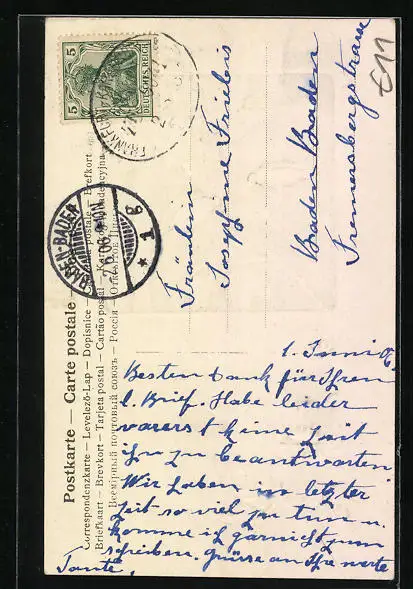 Postkarte — Carte postale
Correspondenzkarte — Levelező-Lap — Dopisnice
Briefkaart — Brevkort — Tarjeta postal — Cartão postal
Всемірный почтовый союзъ — Россія
DEUTSCHES REICH
5 5
BADEN-BADEN
* 1 g
Fräulein
Josephine
Baden Baden
Fremersbergstrasse
€11
1. Juni 06
Besten Dank für Ihren
l. Brief. Habe leider
keine Zeit
ihn zu beantworten
Wir haben in letzter
Zeit so viel zu tun u.
komme ich garnicht zum
schreiben. Grüsse an Ihre werte
Tante.